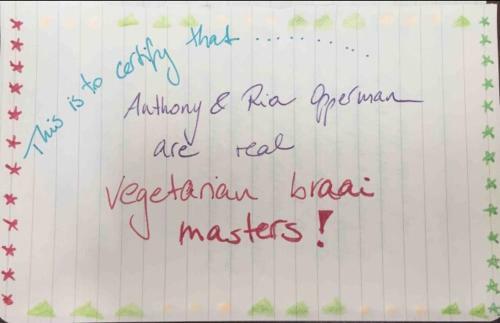 This is to certify that ...........
Anthony & Ria Opperman
are real
vegetarian braai
masters!